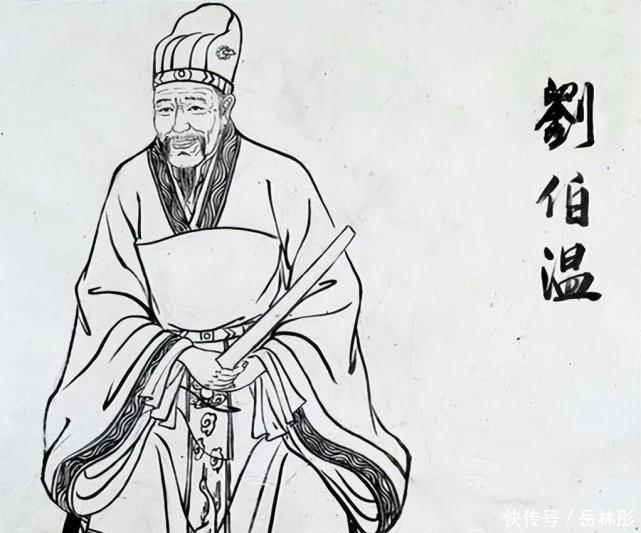 劉伯温
快传号／岳林彤